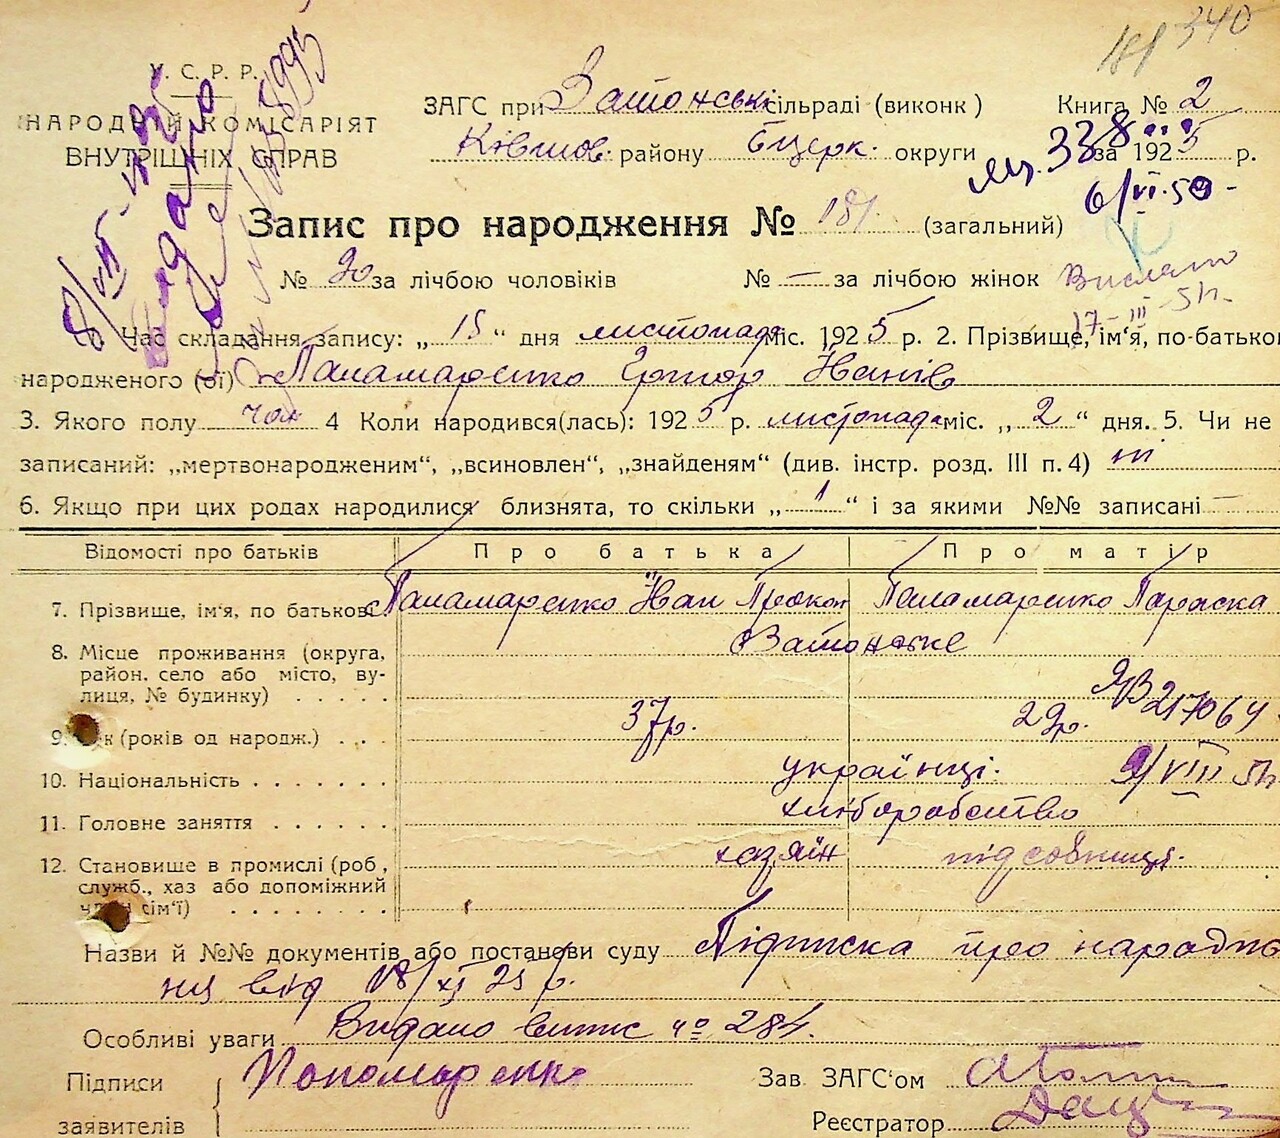 181 340
У. С. Р. Р.
НАРОДНІЙ КОМІСАРІЯТ
ВНУТРІШНІХ СПРАВ
ЗАГС при Затонські сільраді (виконк)
Книга № 2
Ківшов. району Бцерк. округи
за 1925 р.
338
6/VI-50
Запис про народження № 181 (загальний)
8/VII
Видано
№ 90 за лічбою чоловіків № — за лічбою жінок
Вислано
17-III-51
Час складання запису: „ 15 “ дня листопада міс. 1925 р. 2. Прізвище, ім‘я, по-батькові
народженого (ої) Паламаренко Григор Иванів
3. Якого полу чол 4 Коли народився(лась): 1925 р. листопада міс. „ 2 “ дня. 5. Чи не
записаний: „мертвонародженим“, „всиновлен“, „знайденям“ (див. інстр. розд. III п. 4) ні
6. Якщо при цих родах народилися близнята, то скільки „ 1 “ і за якими №№ записані —
Відомості про батьків Про батька Про матір
7. Прізвище, ім‘я, по батькові Паламаренко Иван Прокоп Паламаренко Параска
8. Місце проживання (округа, район. село або місто, ву-
лиця, № будинку) . . . . . Затонське
ЯВ 217064
9. Вік (років од народж.) . . . 37р. 29р.
10. Національність . . . . . . . українці.
9/VIII 51
11. Головне заняття . . . . . . хліборобство
12. Становище в промислі (роб., служб., хаз або допоміжний
член сім‘ї) . . . . . . . . хазяїн підсобниця.
Назви й №№ документів або постанови суду Підписка про народже-
ня від 18/XI 25 р.
Особливі уваги Видано витис № 284.
Підписи
заявителів
Пономаренко
Зав ЗАГС‘ом
Реєстратор